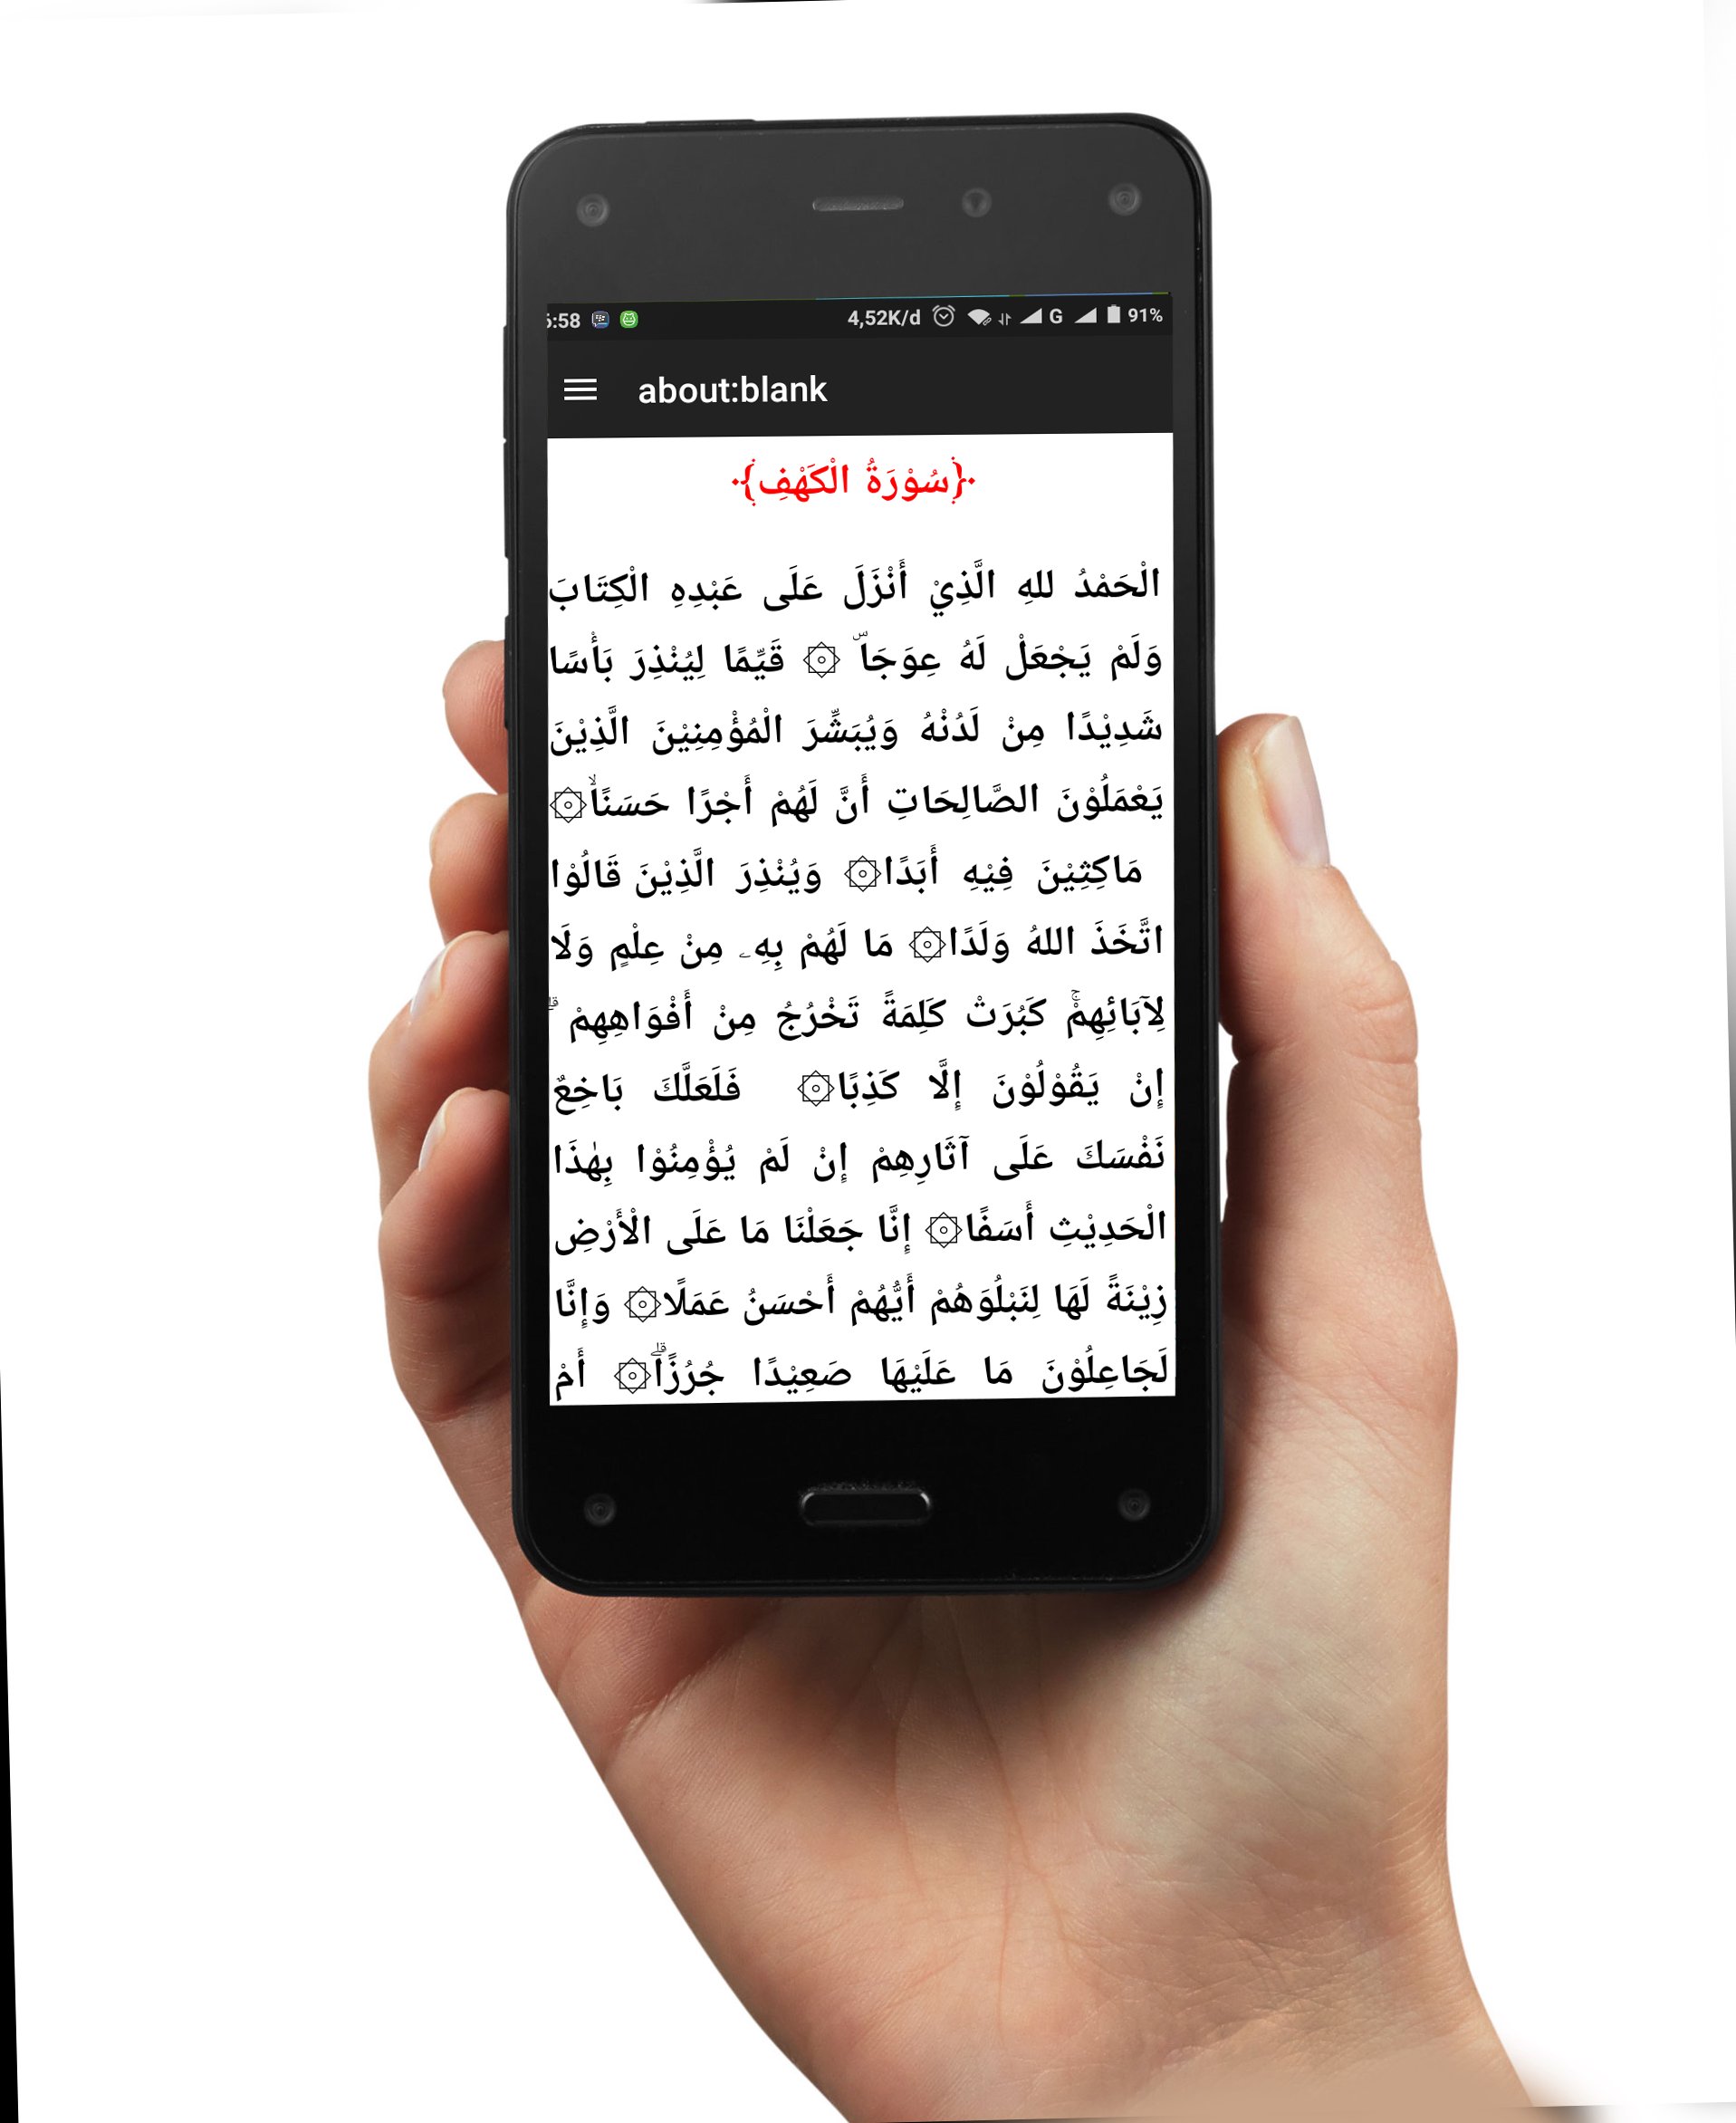 :58 4,52K/d G 91%
about:blank
﴿سُوْرَةُ الْكَهْفِ﴾
الْحَمْدُ للهِ الَّذِيْ أَنْزَلَ عَلَى عَبْدِهِ الْكِتَابَ
وَلَمْ يَجْعَلْ لَهُ عِوَجَاۜ ۞ قَيِّمًا لِيُنْذِرَ بَأْسًا
شَدِيْدًا مِنْ لَدُنْهُ وَيُبَشِّرَ الْمُؤْمِنِيْنَ الَّذِيْنَ
يَعْمَلُوْنَ الصَّالِحَاتِ أَنَّ لَهُمْ أَجْرًا حَسَنًاۙ۞
مَاكِثِيْنَ فِيْهِ أَبَدًا۞ وَيُنْذِرَ الَّذِيْنَ قَالُوْا
اتَّخَذَ اللهُ وَلَدًا۞ مَا لَهُمْ بِهِۦ مِنْ عِلْمٍ وَلَا
لِآبَائِهِمْۚ كَبُرَتْ كَلِمَةً تَخْرُجُ مِنْ أَفْوَاهِهِمْ ۗ
إِنْ يَقُوْلُوْنَ إِلَّا كَذِبًا۞ فَلَعَلَّكَ بَاخِعٌ
نَفْسَكَ عَلَى آثَارِهِمْ إِنْ لَمْ يُؤْمِنُوْا بِهٰذَا
الْحَدِيْثِ أَسَفًا۞ إِنَّا جَعَلْنَا مَا عَلَى الْأَرْضِ
زِيْنَةً لَهَا لِنَبْلُوَهُمْ أَيُّهُمْ أَحْسَنُ عَمَلًا۞ وَإِنَّا
لَجَاعِلُوْنَ مَا عَلَيْهَا صَعِيْدًا جُرُزًاۗ۞ أَمْ